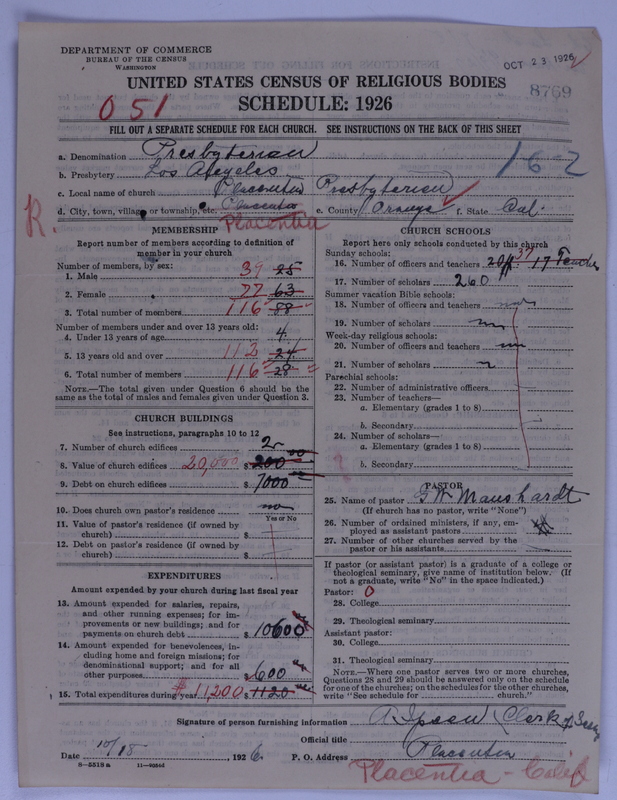 DEPARTMENT OF COMMERCE
BUREAU OF THE CENSUS
WASHINGTON
OCT 23 1926
8769
UNITED STATES CENSUS OF RELIGIOUS BODIES
SCHEDULE: 1926
051
FILL OUT A SEPARATE SCHEDULE FOR EACH CHURCH. SEE INSTRUCTIONS ON THE BACK OF THIS SHEET
a. Denomination Presbyterian
162
b. Presbytery Los Angeles
c. Local name of church Placentia Presbyterian
d. City, town, village or township, etc. Placentia e. County Orange f. State Cal.
R. Placentia
MEMBERSHIP
Report number of members according to definition of
member in your church
Number of members, by sex:
1. Male 39 25
2. Female 77 63
3. Total number of members 116 88
Number of members under and over 13 years old:
4. Under 13 years of age 4
5. 13 years old and over 112 24
6. Total number of members 116 28
NOTE.—The total given under Question 6 should be
same as the total of males and females given under Question 3.
CHURCH BUILDINGS
See instructions, paragraphs 10 to 12
7. Number of church edifices 2
8. Value of church edifices 20,000 $ 200
9. Debt on church edifices $ 7000
10. Does church own pastor's residence no
Yes or No
11. Value of pastor's residence (if owned by
church) $
12. Debt on pastor's residence (if owned by
church) $
EXPENDITURES
Amount expended by your church during last fiscal year
13. Amount expended for salaries, repairs,
and other running expenses; for im-
provements or new buildings; and for
payments on church debt $ 10600
14. Amount expended for benevolences, in-
cluding home and foreign missions; for
denominational support; and for all
other purposes $ 600
15. Total expenditures during year $11,200 $ 1120
CHURCH SCHOOLS
Report here only schools conducted by this church
Sunday schools:
16. Number of officers and teachers 20 off. 37 17 Teacher
17. Number of scholars 260
Summer vacation Bible schools:
18. Number of officers and teachers none
19. Number of scholars
Week-day religious schools:
20. Number of officers and teachers
21. Number of scholars
Parochial schools:
22. Number of administrative officers
23. Number of teachers—
a. Elementary (grades 1 to 8)
b. Secondary
24. Number of scholars—
a. Elementary (grades 1 to 8)
b. Secondary
PASTOR
25. Name of pastor G W Maushardt
(If church has no pastor, write "None")
26. Number of ordained ministers, if any, em-
ployed as assistant pastors
27. Number of other churches served by the
pastor or his assistants
If pastor (or assistant pastor) is a graduate of a college or
theological seminary, give name of institution below. (If
not a graduate, write "No" in the space indicated.)
Pastor: 0
28. College
29. Theological seminary
Assistant pastor:
30. College
31. Theological seminary
NOTE.—Where one pastor serves two or more churches,
Questions 28 and 29 should be answered only on the schedule
for one of the churches; on the schedules for the other churches,
write "See schedule for church."
Signature of person furnishing information A. Ipson Clerk of
Official title
Date 10/18, 1926. P. O. Address Placentia
8—5518 a
Placentia - Calif